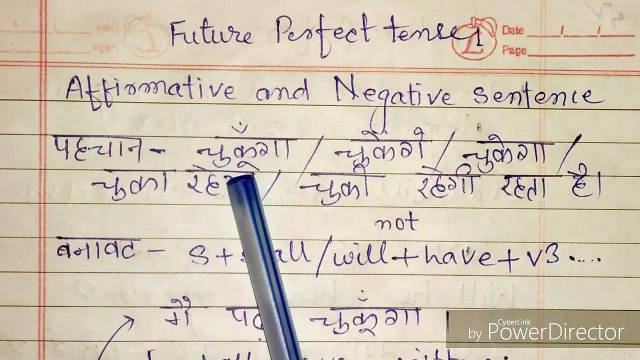 Future Perfect tense
Date
Page
Affirmative and Negative sentence
पहचान - चुकूँगा / चुकेंगे / चुकेगा /
चुका / चुकी रहेगी रहता है।
not
बनावट - S + /will + have + v3 ....
मै चुकूँगा
CyberLink
by PowerDirector